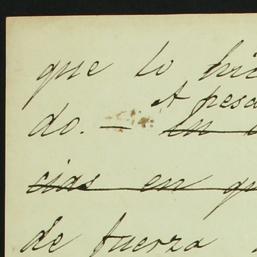 que lo hic
A pesa
do. — en
cias en q
de fuerza